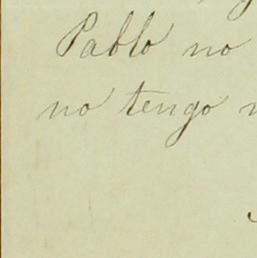 Pablo no
no tengo